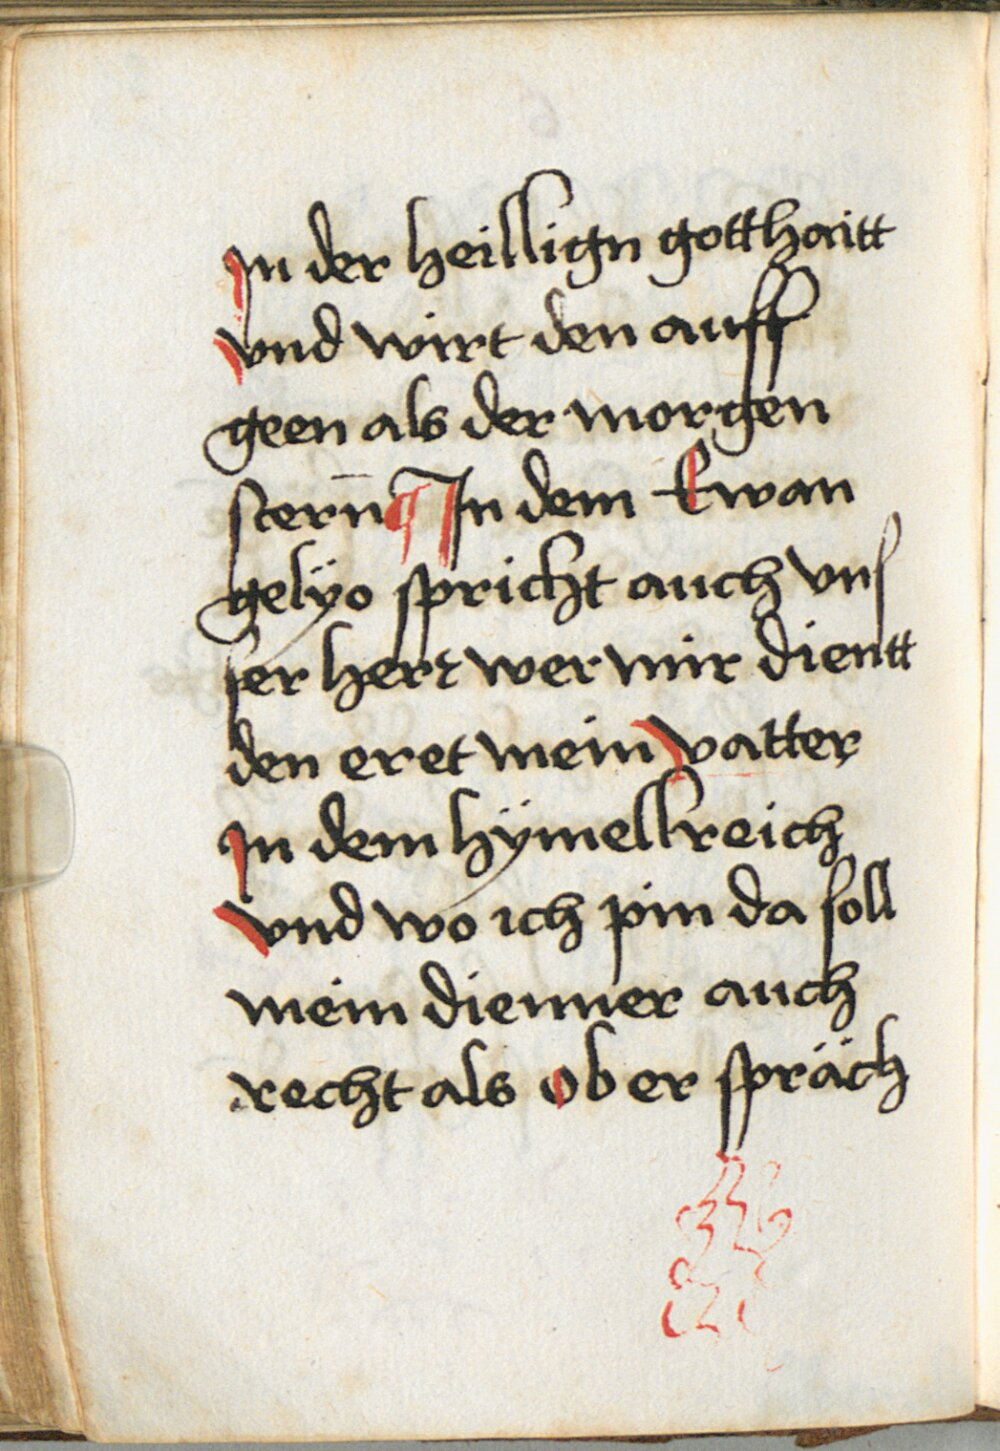 In der heillign gotthaitt
vnd wirt den auff
geen als der morgen
stern̄ ¶ In dem Ewan
gelÿo spricht auch vns
ser herr wer mir dientt
den eret mein vatter
In dem hÿmellreich
vnd wo ich pin da soll
mein dienner auch
recht als ob er spräch